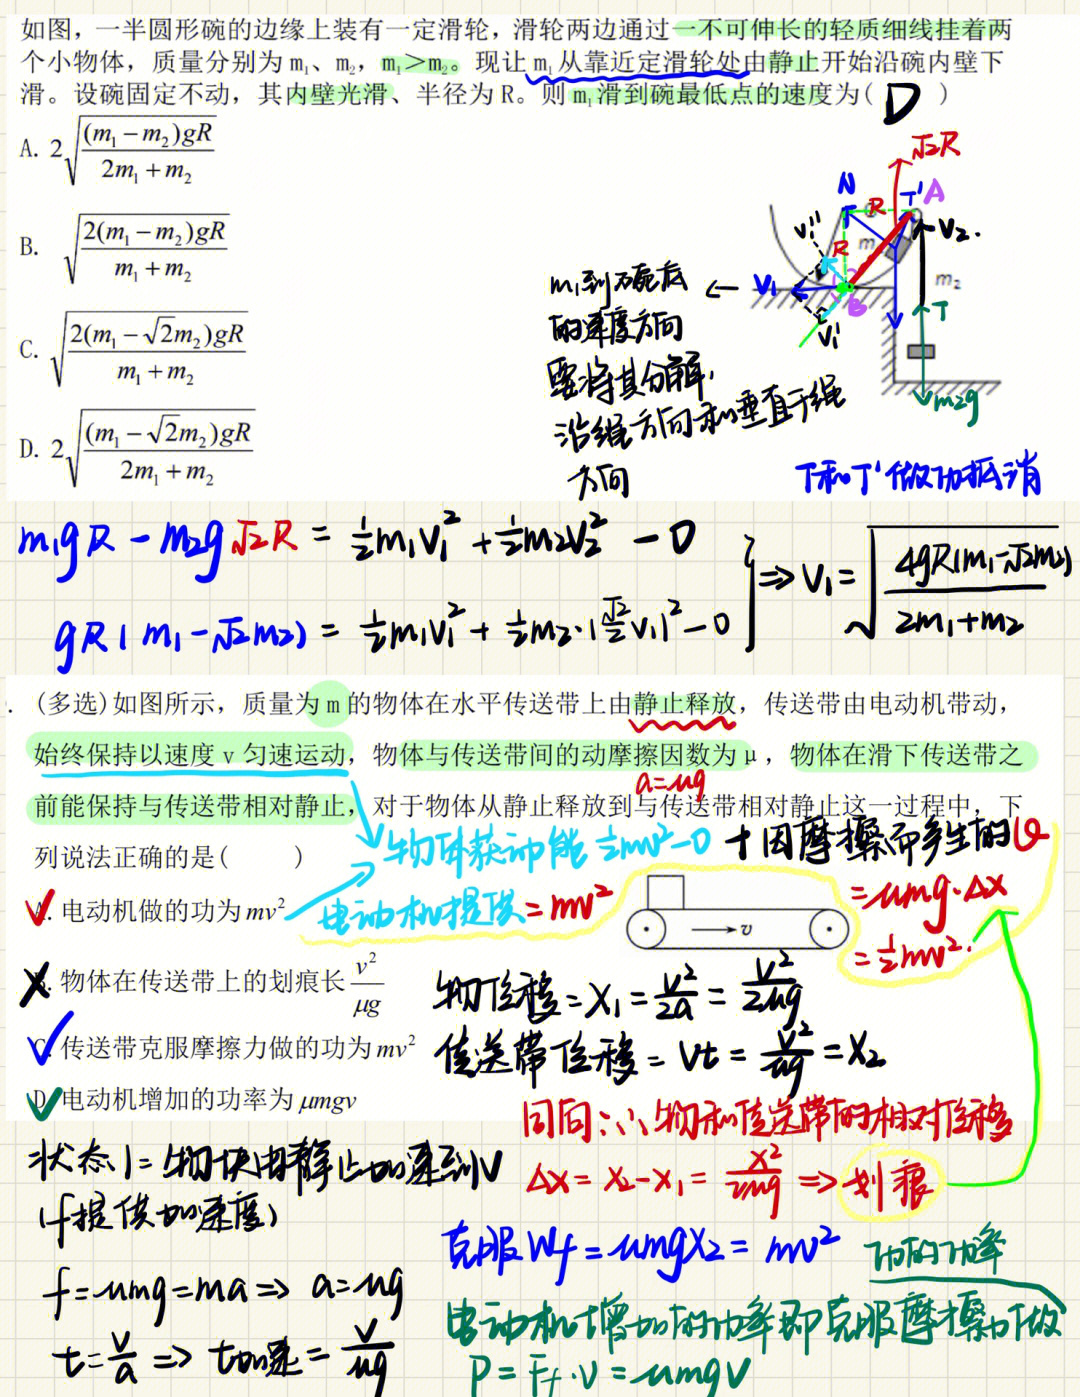 如图，一半圆形碗的边缘上装有一定滑轮，滑轮两边通过一不可伸长的轻质细线挂着两
个小物体，质量分别为 m₁、m₂，m₁＞m₂。现让 m₁ 从靠近定滑轮处由静止开始沿碗内壁下
滑。设碗固定不动，其内壁光滑、半径为 R。则 m₁ 滑到碗最低点的速度为( D )
A. 2√((m₁−m₂)gR/(2m₁+m₂))
B. √(2(m₁−m₂)gR/(m₁+m₂))
C. √(2(m₁−√2m₂)gR/(m₁+m₂))
D. 2√((m₁−√2m₂)gR/(2m₁+m₂))
√2R
N
T'
A
R
V₂.
V₁''
R
m
m₂
V₁
B
T
V₁'
m₂g
m₁到碗底
的速度方向
要将其分解,
沿绳方向和垂直于绳
方向
T和T'做功抵消
m₁gR − m₂g√2R = ½m₁V₁² + ½m₂V₂² − 0
gR(m₁−√2m₂) = ½m₁V₁² + ½m₂·(√2/2 V₁)² − 0
⇒ V₁ = √(4gR(m₁−√2m₂)/(2m₁+m₂))
. (多选)如图所示，质量为 m 的物体在水平传送带上由静止释放，传送带由电动机带动，
始终保持以速度 v 匀速运动，物体与传送带间的动摩擦因数为 μ，物体在滑下传送带之
a=μg
前能保持与传送带相对静止，对于物体从静止释放到与传送带相对静止这一过程中，下
列说法正确的是(　　)
物体获动能 ½mv²−0 + 因摩擦而产生的Q
= μmg·Δx
= ½mv².
A. 电动机做的功为 mv²
电动机提供 = mv²
v
B. 物体在传送带上的划痕长 v²/μg
物位移 = X₁ = v²/2a = v²/2μg
C. 传送带克服摩擦力做的功为 mv²
传送带位移 = Vt = v²/μg = X₂
D. 电动机增加的功率为 μmgv
同向 ∴ 物和传送带的相对位移
Δx = X₂−X₁ = x²/2μg ⇒ 划痕
状态1= 物块由静止加速到V
(f提供加速度)
f=μmg=ma ⇒ a=μg
t=v/a ⇒ t加速=v/μg
克服Wf = μmgX₂ = mv²
功的功率
电动机增加的功率即克服摩擦力做
P = Ff·V = μmgV